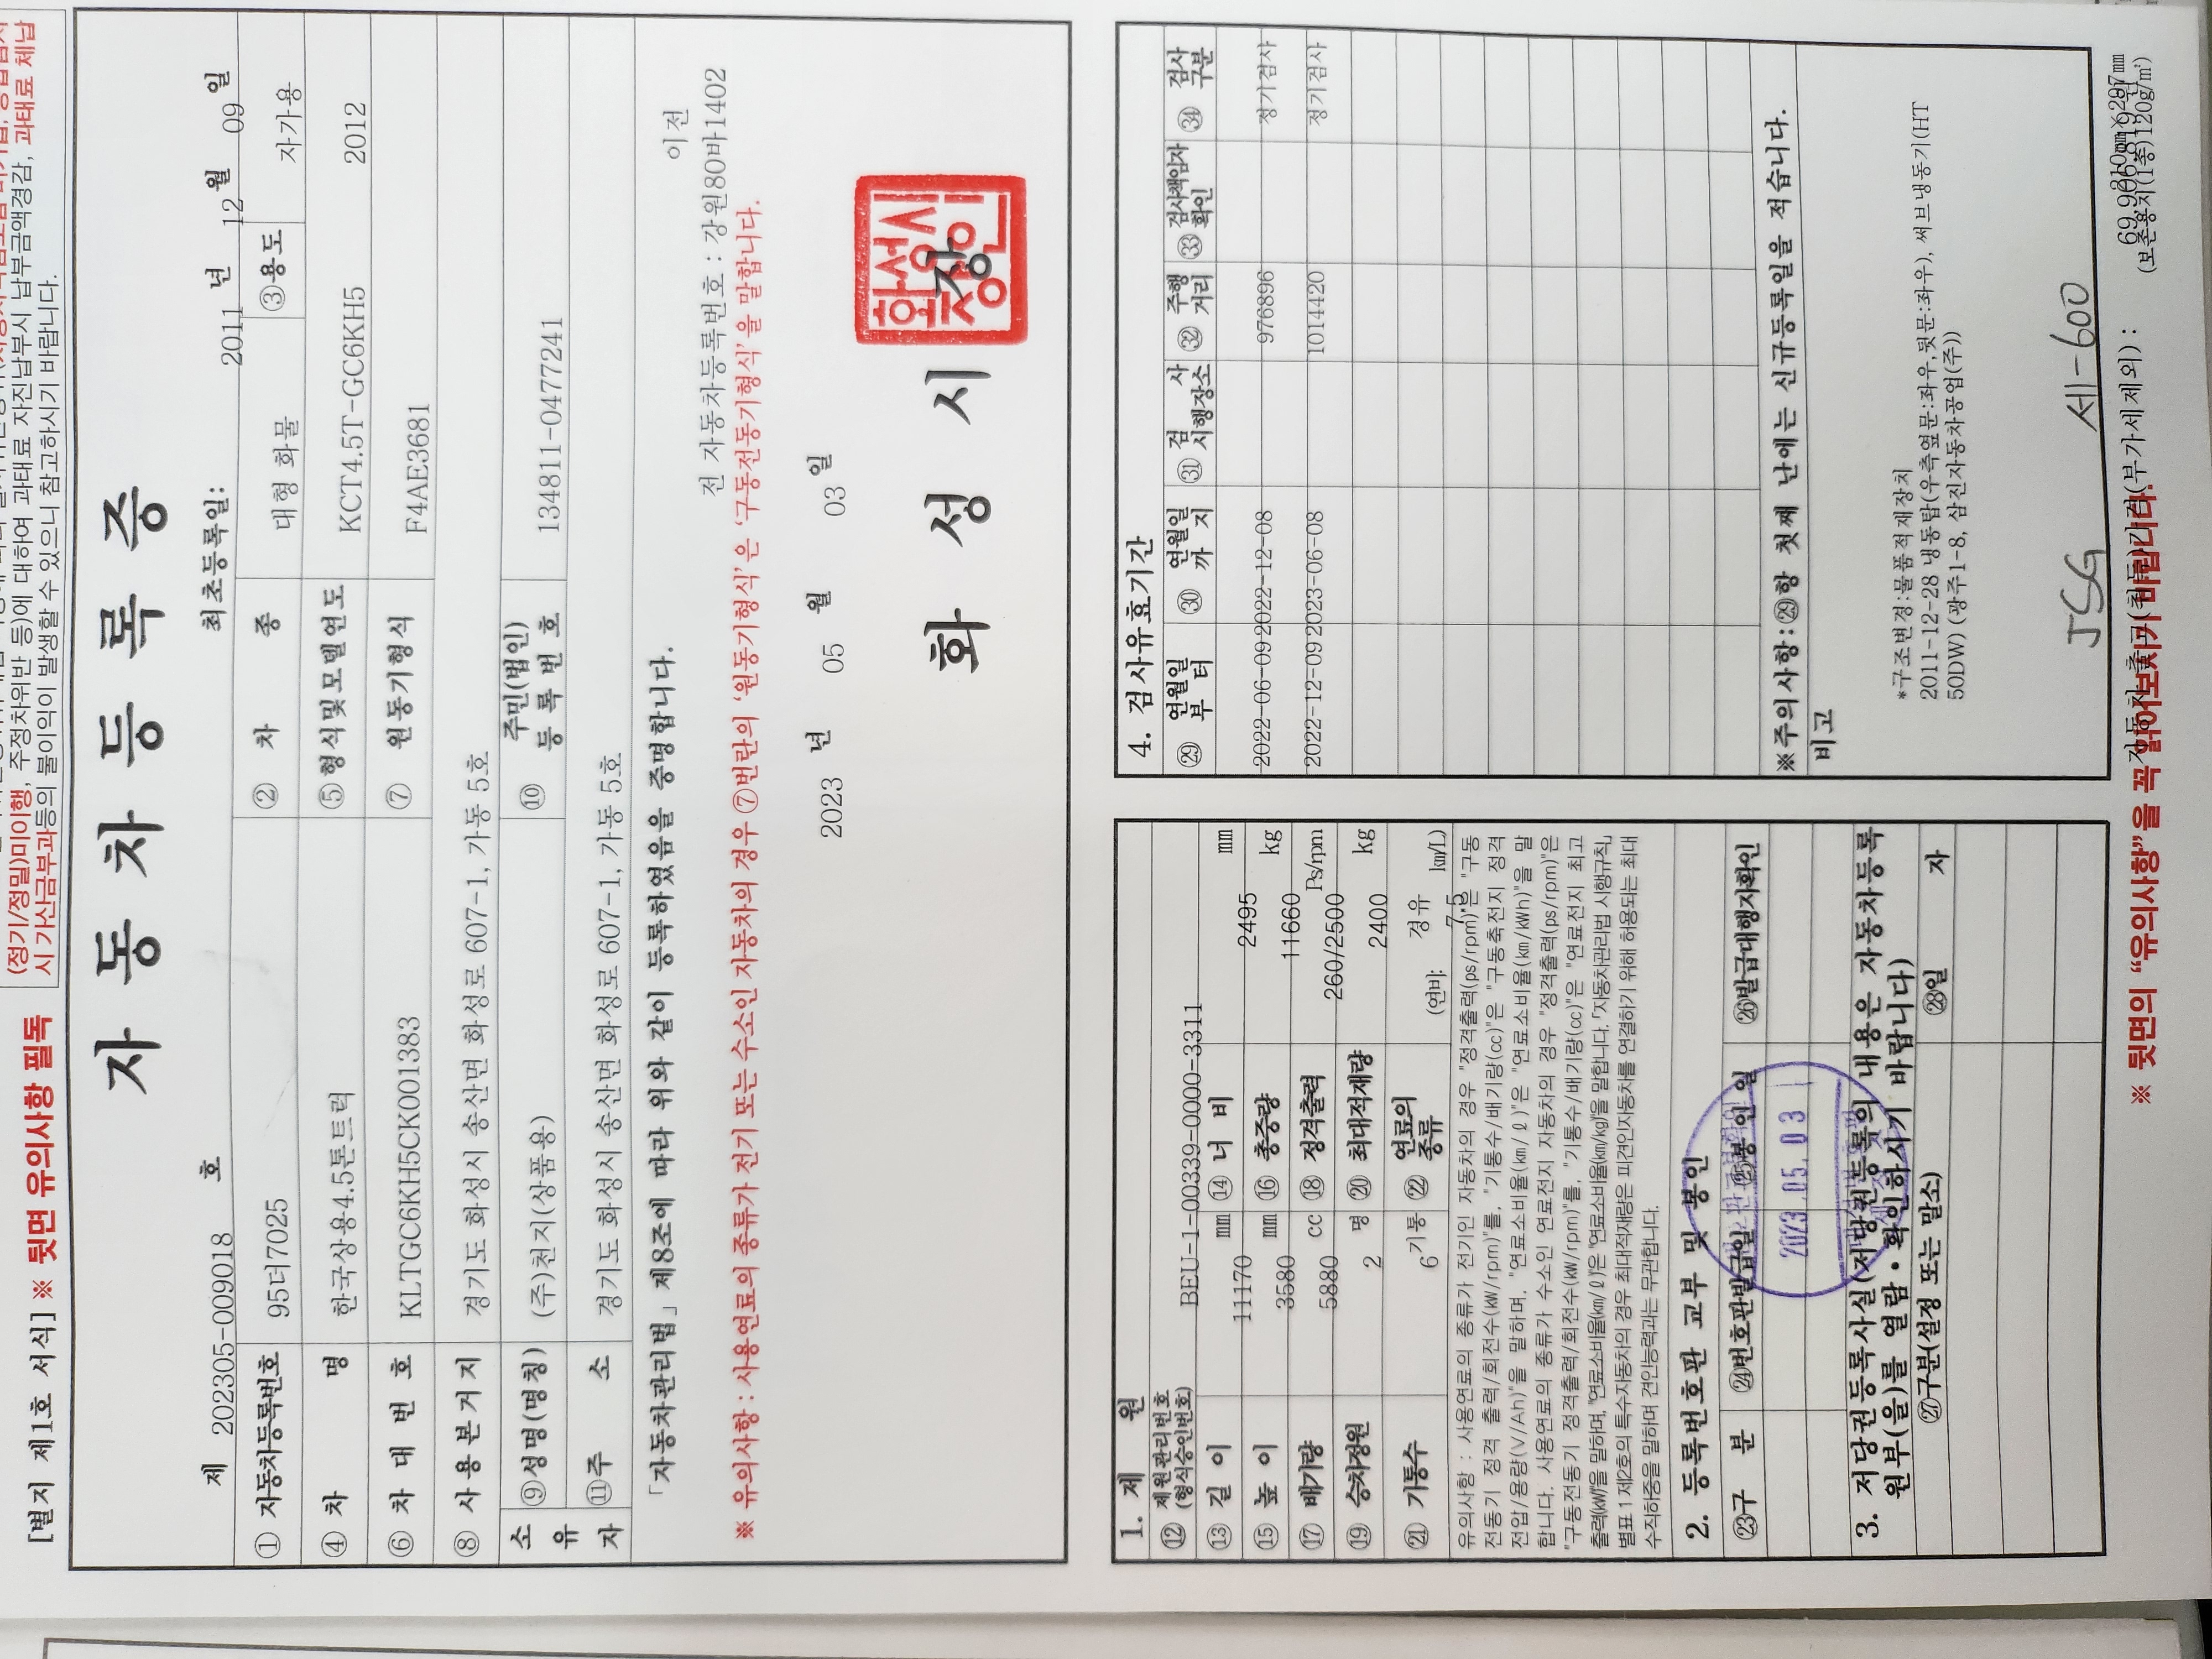 [별지 제1호 서식] ※ 뒷면 유의사항 필독
(정기/정밀)미이행, 주정차위반 등)에 대하여 과태료 자진납부시 납부금액경감, 과태료 체납
시 가산금부과등의 불이익이 발생할 수 있으니 참고하시기 바랍니다.
자 동 차 등 록 증
제 202305-009018 호
최초등록일: 2011 년 12 월 09 일
① 자동차등록번호 95더7025 ② 차 종 대형 화물 ③용도 자가용
④ 차 명 한국상용4.5톤트럭 ⑤형식및모델연도 KCT4.5T-GC6KH5 2012
⑥ 차 대 번 호 KLTGC6KH5CK001383 ⑦ 원동기형식 F4AE3681
⑧ 사 용 본 거 지 경기도 화성시 송산면 화성로 607-1, 가동 5호
소 유 자
⑨성명(명칭) (주)천지(상품용) ⑩ 주민(법인) 등 록 번 호 134811-0477241
⑪주 소 경기도 화성시 송산면 화성로 607-1, 가동 5호
「자동차관리법」 제8조에 따라 위와 같이 등록하였음을 증명합니다.
이전
전 자동차등록번호 : 강원80바1402
※ 유의사항 : 사용연료의 종류가 전기 또는 수소인 자동차의 경우 ⑦번란의 '원동기형식'은 '구동전동기형식'을 말합니다.
2023 년 05 월 03 일
화 성 시 장
화성시장인
1. 제 원
⑫ 제원관리번호 (형식승인번호) BEU-1-00339-0000-3311
⑬ 길 이 11170 mm ⑭ 너 비 2495 mm
⑮ 높 이 3580 mm ⑯ 총중량 11660 kg
⑰ 배기량 5880 cc ⑱ 정격출력 260/2500 Ps/rpm
⑲ 승차정원 2 명 ⑳ 최대적재량 2400 kg
㉑ 기통수 6 기통 ㉒ 연료의 종류 경유 (연비: 7.5 km/L)
유의사항 : 사용연료의 종류가 전기인 자동차의 경우 "정격출력(ps/rpm)"은 "구동
전동기 정격 출력/회전수(kW/rpm)"를, "기통수/배기량(cc)"은 "구동축전지 정격
전압/용량(V/Ah)"을 말하며, "연료소비율(km/ℓ)"은 "연료소비율(km/kWh)"을 말
합니다. 사용연료의 종류가 수소인 연료전지 자동차의 경우 "정격출력(ps/rpm)"은
"구동전동기 정격출력/회전수(kW/rpm)"를, "기통수/배기량(cc)"은 "연료전지 최고
출력(kW)"을 말하며, "연료소비율(km/ℓ)"은 "연료소비율(km/kg)"을 말합니다. 「자동차관리법 시행규칙」
별표 1 제2호의 특수자동차의 경우 최대적재량은 피견인자동차를 연결하기 위해 허용되는 최대
수직하중을 말하며 견인능력과는 무관합니다.
2. 등록번호판 교부 및 봉인
㉓구 분 ㉔번호판발급일 ㉕봉 인 일 ㉖발급대행자확인
2023.05.03
3. 저당권등록사실(저당권등록의 내용은 자동차등록
원부(을)를 열람・확인하시기 바랍니다)
㉗구분(설정 또는 말소) ㉘일 자
4. 검사유효기간
㉙ 연월일 부 터 ㉚ 연월일 까 지 ㉛ 검 사 시행장소 ㉜ 주행 거리 ㉝ 검사책임자 확인 ㉞ 검사 구분
2022-06-09 2022-12-08 976896 정기검사
2022-12-09 2023-06-08 1014420 정기검사
※주의사항:㉙항 첫째 난에는 신규등록일을 적습니다.
비고
*구조변경:물품적재장치
2011-12-28 냉동탑(우측옆문:좌우,뒷문:좌우), 써브냉동기(HT
50IDW) (광주1-8, 삼진자동차공업(주))
JSG 세-600
자동차 출고(취득)가격(부가세제외) :
※ 뒷면의 "유의사항"을 꼭 읽어보시기 바랍니다.
(보존용지(1종)120g/㎡)